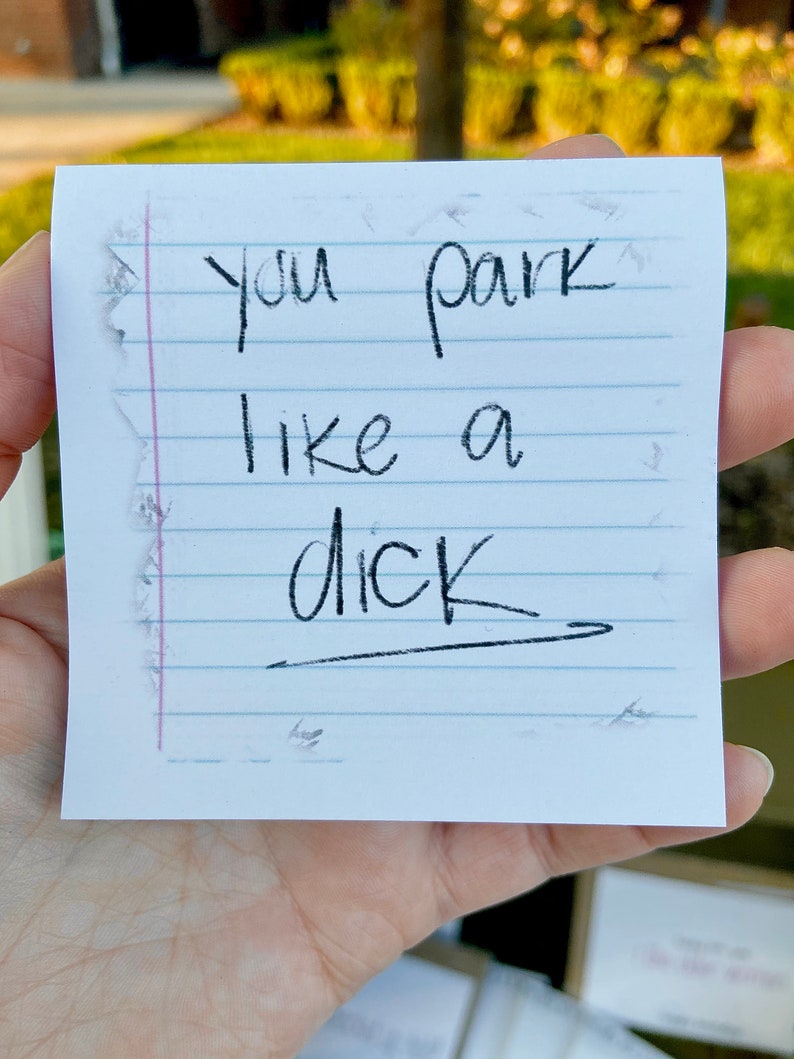 you park
like a
dick